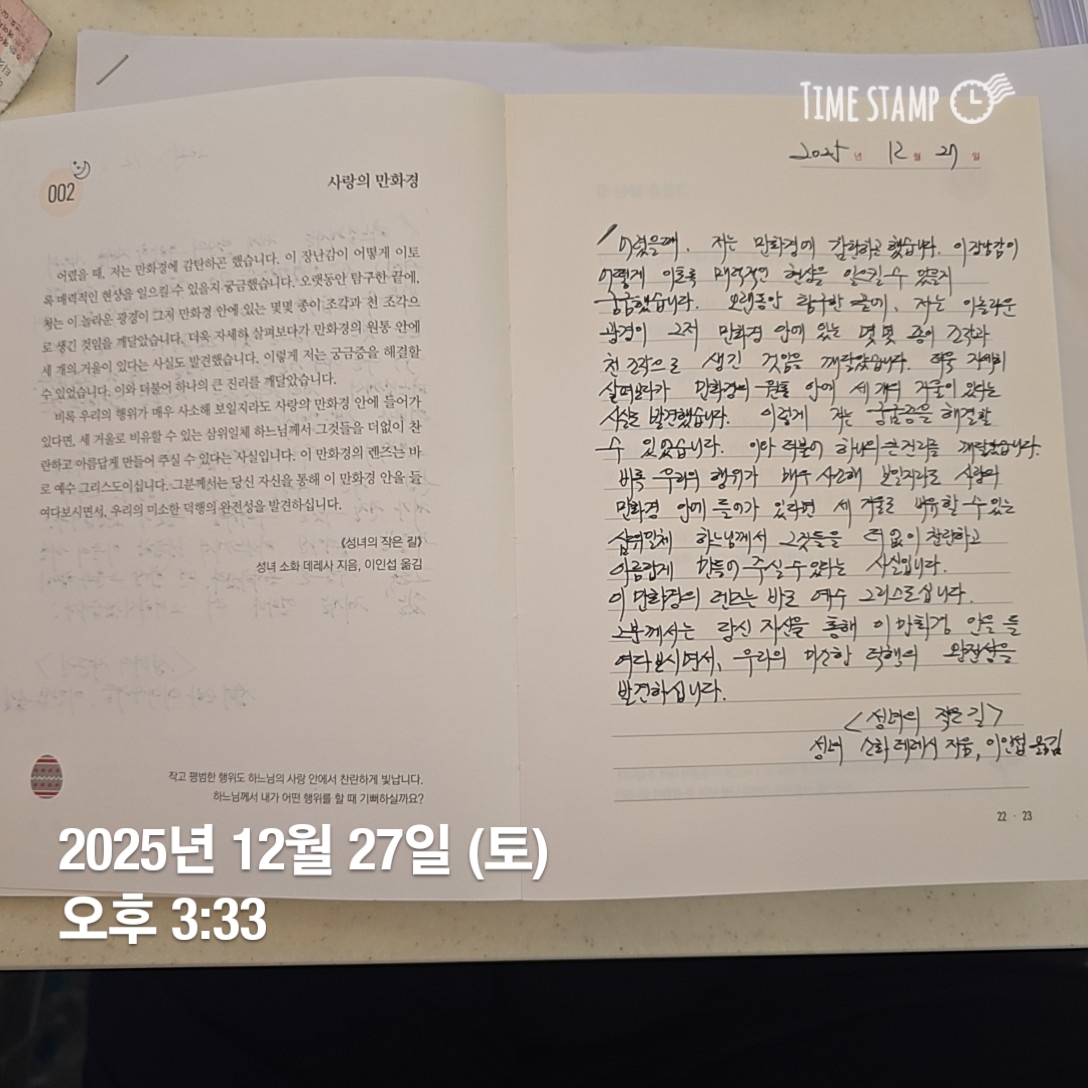 TIME STAMP
002
사랑의 만화경
어렸을 때, 저는 만화경에 감탄하곤 했습니다. 이 장난감이 어떻게 이토
록 매력적인 현상을 일으킬 수 있을지 궁금했습니다. 오랫동안 탐구한 끝에,
저는 이 놀라운 광경이 그저 만화경 안에 있는 몇몇 종이 조각과 천 조각으
로 생긴 것임을 깨달았습니다. 더욱 자세히 살펴보다가 만화경의 원통 안에
세 개의 거울이 있다는 사실도 발견했습니다. 이렇게 저는 궁금증을 해결할
수 있었습니다. 이와 더불어 하나의 큰 진리를 깨달았습니다.
비록 우리의 행위가 매우 사소해 보일지라도 사랑의 만화경 안에 들어가
있다면, 세 거울로 비유할 수 있는 삼위일체 하느님께서 그것들을 더없이 찬
란하고 아름답게 만들어 주실 수 있다는 사실입니다. 이 만화경의 렌즈는 바
로 예수 그리스도이십니다. 그분께서는 당신 자신을 통해 이 만화경 안을 들
여다보시면서, 우리의 미소한 덕행의 완전성을 발견하십니다.
《성녀의 작은 길》
성녀 소화 데레사 지음, 이인섭 옮김
작고 평범한 행위도 하느님의 사랑 안에서 찬란하게 빛납니다.
하느님께서 내가 어떤 행위를 할 때 기뻐하실까요?
2025년 12월 27일
어렸을때, 저는 만화경에 감탄하곤 했습니다. 이장난감이
어떻게 이토록 매력적인 현상을 일으킬 수 있을지
궁금했습니다. 오랫동안 탐구한 끝에, 저는 이놀라운
광경이 그저 만화경 안에 있는 몇몇 종이 조각과
천 조각으로 생긴 것임을 깨달았습니다. 더욱 자세히
살펴보다가 만화경의 원통 안에 세 개의 거울이 있다는
사실도 발견했습니다. 이렇게 저는 궁금증을 해결할
수 있었습니다. 이와 더불어 하나의 큰 진리를 깨달았습니다.
비록 우리의 행위가 매우 사소해 보일지라도 사랑의
만화경 안에 들어가 있다면 세 거울로 비유할 수 있는
삼위일체 하느님께서 그것들을 더 없이 찬란하고
아름답게 만들어 주실 수 있다는 사실입니다.
이 만화경의 렌즈는 바로 예수 그리스도십니다.
그분께서는 당신 자신을 통해 이 만화경 안을 들
여다보시면서, 우리의 미소한 덕행의 완전성을
발견하십니다.
<성녀의 작은길>
성녀 소화 데레사 지음, 이인섭 옮김
22 · 23
2025년 12월 27일 (토)
오후 3:33